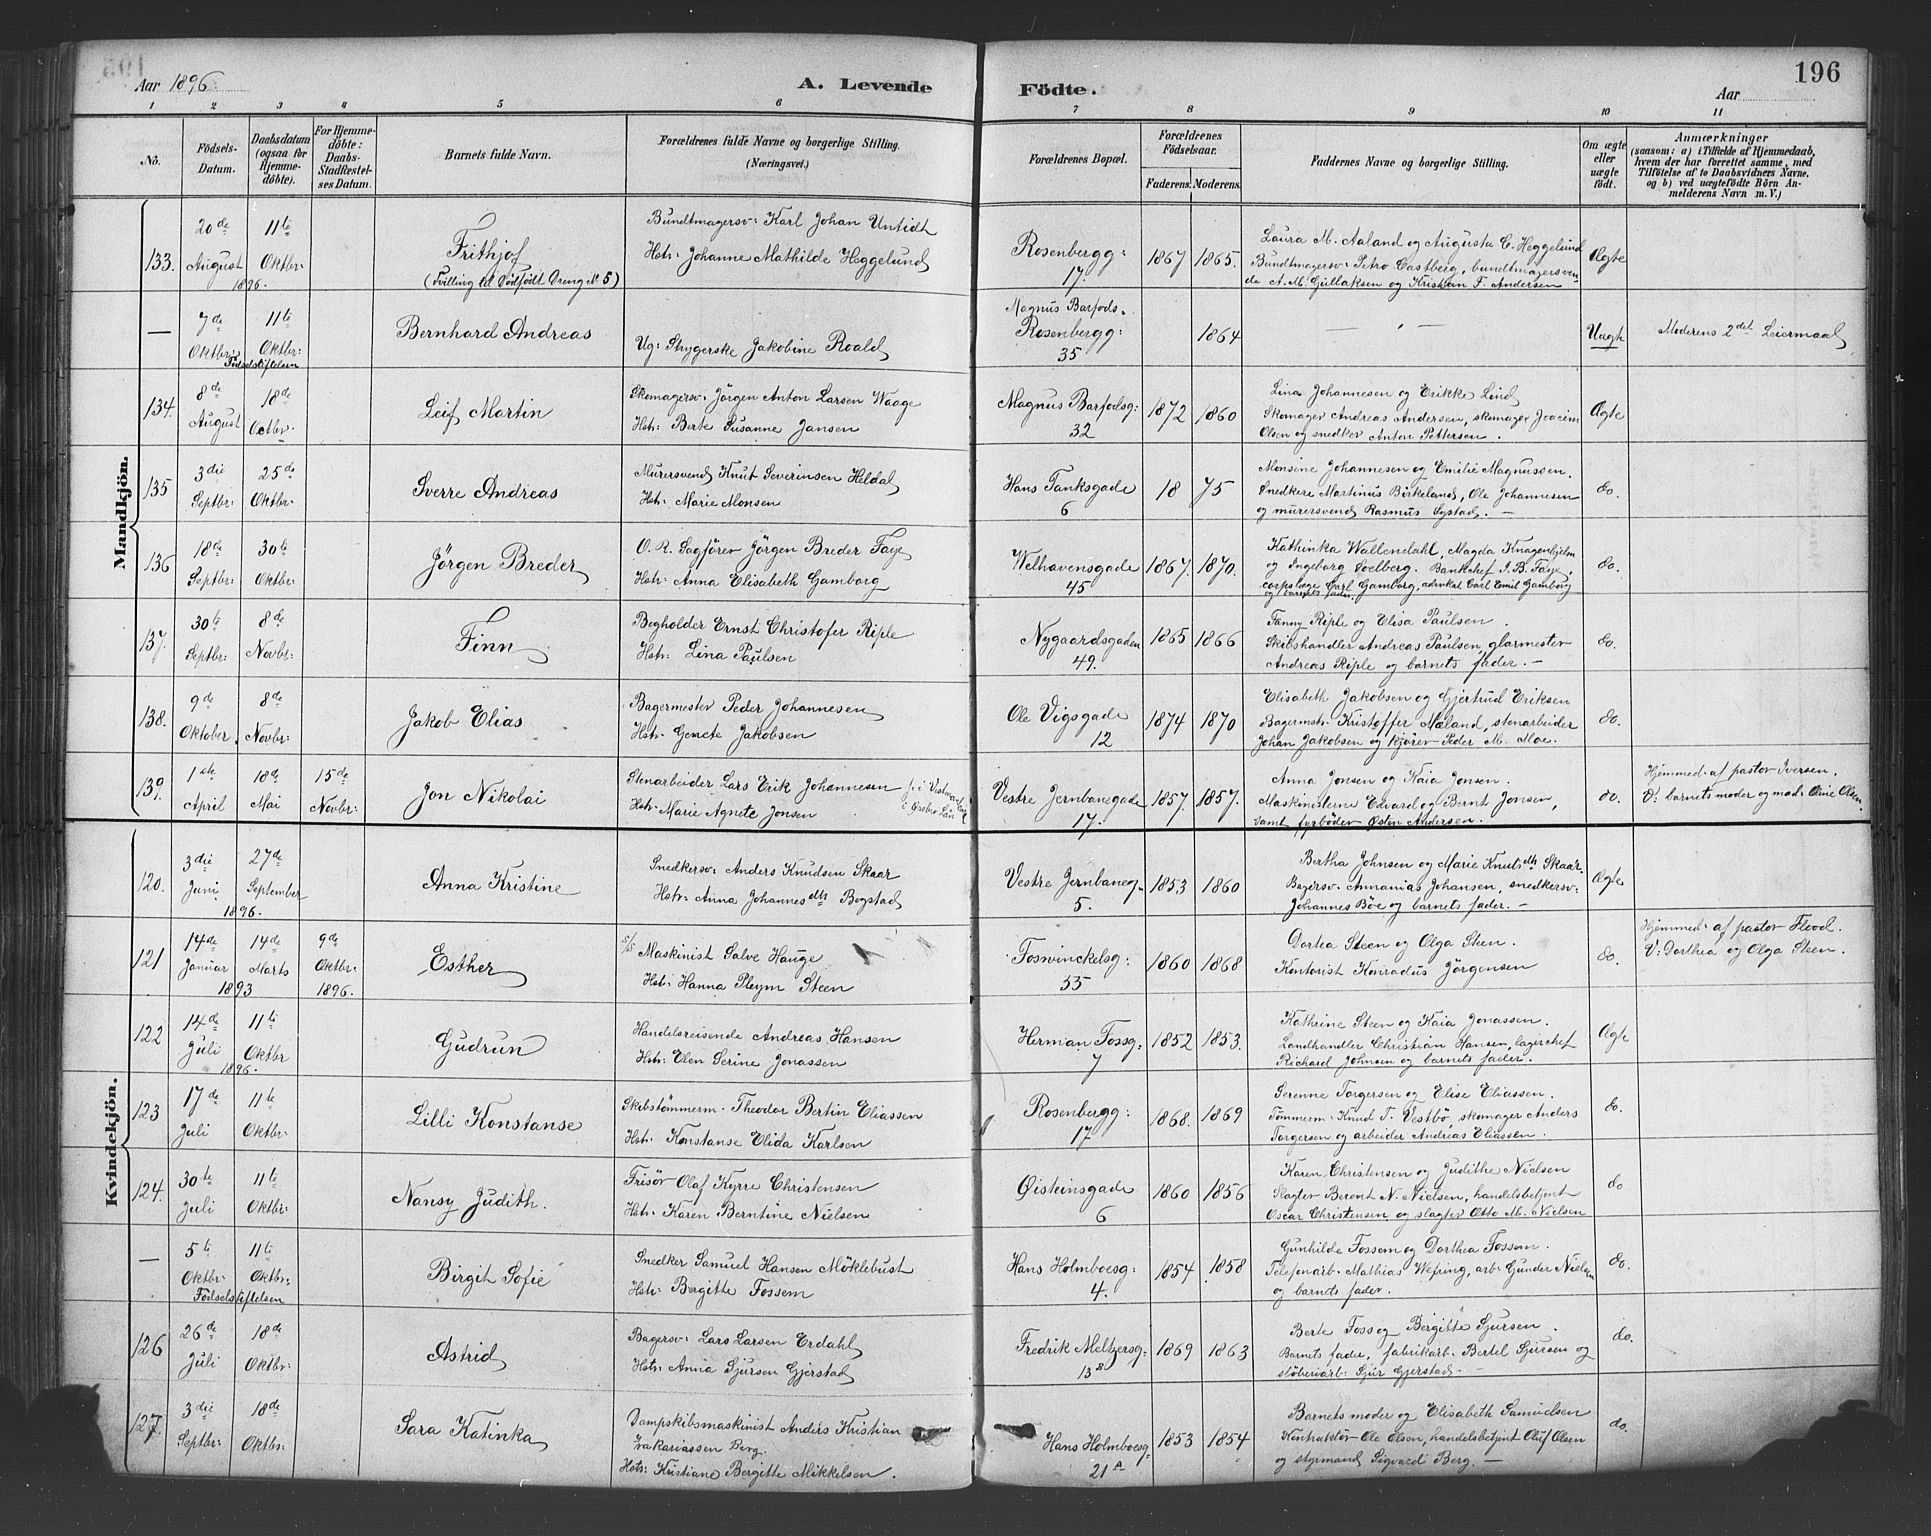 Aar 1896
A. Levende
Födte.
Aar
196
1 2 3 4 5 6 7 8 9 10 11
No.
Födsels-
Datum.
Daabsdatum
(ogsaa for
Hjemme-
döbte).
For Hjemme-
döbte:
Daabs-
Stadfæstel-
ses Datum.
Barnets fulde Navn.
Forældrenes fulde Navne og borgerlige Stilling.
(Næringsvei.)
Forældrenes Bopæl.
Forældrenes
Födselsaar.
Faderens. Moderens.
Faddernes Navne og borgerlige Stilling.
Om ægte
eller
uægte
født.
Anmærkninger
(saasom: a) i Tilfælde af Hjemmedaab,
hvem der har forrettet samme, med
Tilföielse af to Daabsvidners Navne,
og b) ved uægtefödte Börn An-
melderens Navn m. V.)
Mandkjön.
133.
20de August 1896.
11te Oktbr:
Frithjof
(Tvilling til Dödfödt Dreng No 5)
Bundtmagersv: Karl Johan Untidt
Hstr: Johanne Mathilde Heggelund
Rosenbergg:
17.
1867 1865.
Laura M. Aaland og Augusta C. Heggelund
Bundtmagersv: Petro Castberg, bundtmagersven-
de A. M. Gullaksen og Kristian F. Andersen
Ægte
—
7de Oktbr:
Födselsstiftelsen
11te Oktbr:
Bernhard Andreas
Ug: Strygerske Jakobine Roald
Magnus Barfods-
Rosenbergg:
35
1864
— " —
Uægte
Moderens 2det Leiermaal
134.
8de August
18de Octbr.
Leif Martin
Skomagersv. Jörgen Anton Larsen Waage
Hstr: Berte Susanne Jansen
Magnus Barfodsg:
32
1872 1860
Lina Johannesen og Erikke Lind
Skomager Andreas Andersen, skomager Joacim
Olsen og snedker Anton Pettersen.
Ægte
135
3die Septbr:
25de Oktbr:
Sverre Andreas
Murersvend Knut Severinsen Heldal
Hstr: Marie Monsen
Hans Tanksgade
6
18 75
Monsine Johannesen og Emilie Magnussen.
Snedkere Martinus Birkeland, Ole Johannesen
og murersvend Rasmus Systad. —
do.
136
18de Septbr:
30te Oktbr:
Jörgen Breder
O. R. Sagförer Jörgen Breder Faye
Hstr: Anna Elisabeth Gamborg
Welhavensgade
45
1867. 1870.
Kathinka Wallendahl, Magda Knagenhjelm
og Ingeborg Soelberg. Bankchef J. B. Faye,
corpslæge Carl Gamborg, advokat Carl Emil Gamborg
og barnets fader.
do.
137.
30te Septbr:
8de Novbr:
Finn
Bogholder Ernst Christofer Riple
Hstr: Lina Paulsen
Nygaardsgaden
49.
1865 1866
Fanny Riple og Elisa Paulsen.
Skibshandler Andreas Paulsen, glarmester
Andreas Riple og barnets fader. —
do.
138.
9de Oktober.
8de Novbr:
Jakob Elias
Bagermester Peder Johannesen
Hstr: Gemete Jakobsen
Ole Vigsgade
12
1874 1870
Elisabeth Jakobsen og Gjertrud Eriksen
Bagermstr. Kristoffer Mæland, stenarbeider
Johan Jakobsen og kjörer Peder M. Moe.
do.
139.
1ste April
18de Mai
15de Novbr:
Jon Nikolai
Stenarbeider Lars Erik Johannesen
Hstr: Marie Agnete Jonsen
Vestre Jernbanegade
17.
1857. 1857.
Anna Jonsen og Kaia Jonsen.
Maskinisterne Edvard og Bernt Jonsen,
samt fyrböder Östen Andersen.
do.
Hjemmed. af pastor Iversen.
V: barnets moder og mad. Oline Olsen.
Kvindekjön.
120.
3die Juni 1896.
27de September
Anna Kristine
Snedkersv: Anders Knudsen Skaar
Hstr: Anna Johannesdtr Bogstad
Vestre Jernbaneg.
5.
1853 1860
Bertha Johnsen og Marie Knutsdtr Skaar.
Bagersv. Annanias Johansen, snedkersv:
Johannes Böe og barnets fader. —
Ægte
121
14de Januar 1893
14de Marts
9de Oktbr: 1896.
Esther
5/5 Maskinist Salve Hauge
Hstr: Hanna Pleym Steen
Fosvinckelsg:
55
1860 1868
Dortea Steen og Olga Steen.
Kontorist Konradus Jörgensen
do.
Hjemmed. af pastor Flood.
V: Dorthea og Olga Steen.
122
14de Juli 1896.
11te Oktbr
Gudrun
Handelsreisende Andreas Hansen
Hstr: Elen Serine Jonassen
Herman Fossg:
7
1852 1853.
Kathrine Steen og Kaia Jonassen.
Landhandler Christian Hansen, lagerchef
Richard Johnsen og barnets fader.
Ægte
123
17de Juli
11te Oktbr:
Lilli Konstanse
Skibstömmerm. Theodor Bertin Eliassen
Hstr: Konstanse Elida Karlsen
Rosenbergg:
17
1868. 1869
Serenne Torgersen og Elise Eliassen.
Tömmerm. Knud T. Vestbö, skomager Anders
Torgersen og arbeider Andreas Eliassen.
do.
124.
30te Juli
11te Oktbr:
Nansy Judith.
Frisör Olaf Kyrre Christensen
Hstr: Karen Berntine Nielsen
Øisteinsgade
6
1860 1856
Karen Christensen og Judithe Nielsen
Slagter Berent N. Nielsen, handelsbetjent
Oscar Christensen og slagter Otto M. Nielsen
do
—
5te Oktbr.
Födselsstiftelsen
11te Oktbr:
Birgit Sofie
Snedker Samuel Hansen Möklebust
Hstr: Bergitte Fossem
Hans Holmboesg:
4.
1854 1858
Gunhilde Fossem og Dorthea Fossem.
Telefonarb. Mathias Wefring, arb: Gunder Nielsen
og barnets fader.
do.
126
26de Juli
18de Oktbr:
Astrid
Bagersv: Lars Larsen Erdahl
Hstr: Anna Sjursen Gjerstad
Fredrik Meltzersg:
13 B
1869 1863
Berte Foss og Bergitte Sjursen.
Barnets fader, fabrikarb. Bertel Sjursen og
stöberiarb: Sjur Gjerstad.—
do.
127.
3die Septbr:
18de Oktbr:
Sara Katinka
Dampskibsmaskinist Anders Kristian
Zakariassen Berg.
Hstr: Kristiane Bergitte Mikkelsen.
Hans Holmboesg:
21 A
1853 1854
Barnets moder og Elisabeth Samuelsen
Kontraktör Ole Olsen, handelsbetjent Oluf Olsen
og styrmand Sigvard Berg. —
do.